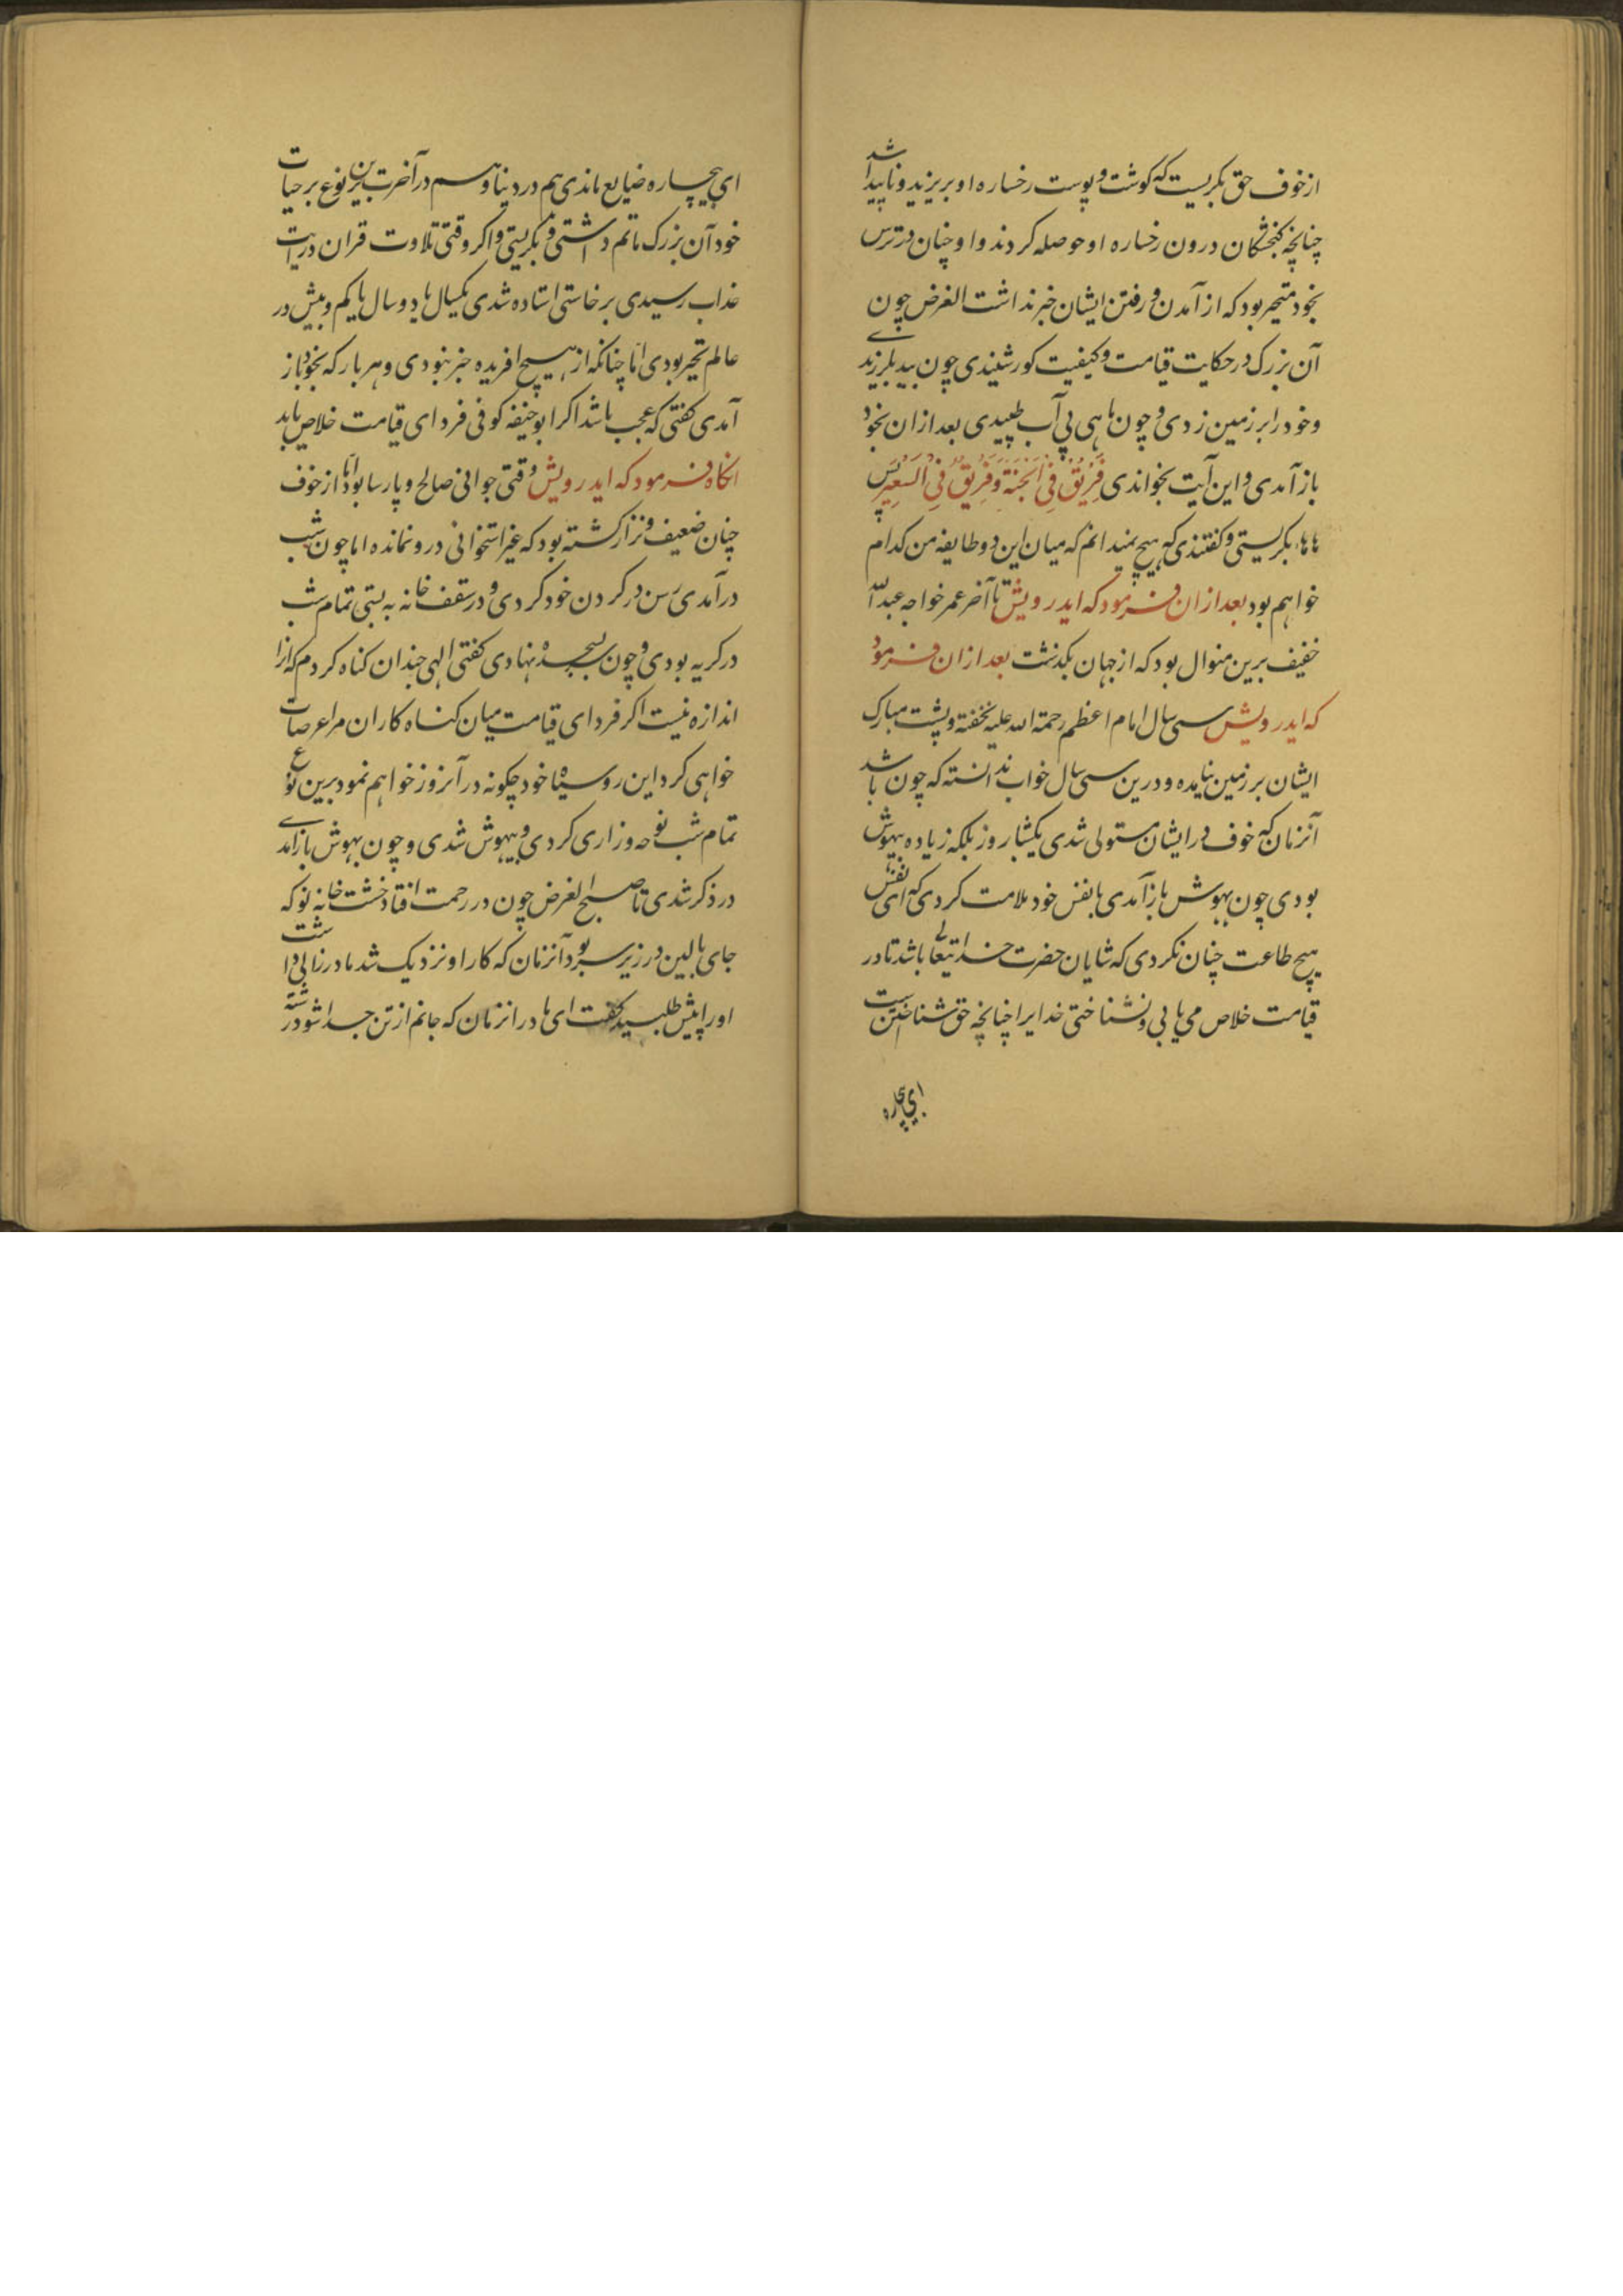 از خوف حق بکریست که کوشت و پوست رخساره او بریزید و ناپیدا شد
چنانچه کنجشکان درون رخساره او حوصله کردند و او چنان در ترس
بخود متحیر بود که از آمدن و رفتن ایشان خبر نداشت الغرض چون
آن بزرک در حکایت قیامت و کیفیت کور شنیدی چون بید بلرزیدی
و خود را بر زمین زدی و چون ماهی بی آب طپیدی بعد ازان بخود
باز آمدی و این آیت بخواندی فَرِیْقٌ فِی الْجَنَّةِ وَ فَرِیْقٌ فِی السَّعِیْرِ پس
هاها بکریستی و کفتندی که هیچ نمیدانم که میان این دو طایفه من کدام
خواهم بود بعد ازان فرمود که ایدرویش تا آخر عمر خواجه عبدالله
خفیف برین منوال بود که از جهان بکذشت بعد ازان فرمود
که ایدرویش سی سال امام اعظم رحمة الله علیه نخفته و پشت مبارک
ایشان بر زمین نیامده و درین سی سال خواب ندانسته که چون باشد
آنزمان که خوف در ایشان مستولی شدی یکشبا روز بلکه زیاده بیهوش
بودی چون بهوش باز آمدی با نفس خود ملامت کردی که ای نفس
هیچ طاعت چنان نکردی که شایان حضرت خدایتعالی باشد تا در
قیامت خلاص می یابی و نشناختی خدایرا چنانچه حق شناختن است
ای بیچاره
ای بیچاره ضایع ماندی هم در دنیا و هم در آخرت برین نوع بر حیات
خود آن بزرک ماتم داشتی و بکریستی و اکر وقتی تلاوت قران در آیت
عذاب رسیدی برخاستی استاده شدی یکسال یا دو سال یا کم و بیش در
عالم تحیر بودی اما چنانکه از هیچ افریده خبر نبودی و هر بار که بخود باز
آمدی کفتی که عجب باشد اکر ابو حنیفه کوفی فردای قیامت خلاص یابد
انکاه فرمود که ایدرویش وقتی جوانی صالح و پارسا بود اما از خوف
چنان ضعیف و نزار کشته بود که غیر استخوانی درو نمانده اما چون شب
در آمدی رسن در کردن خود کردی و در سقف خانه به بستی تمام شب
در کریه بودی و چون بسجده نهادی کفتی الهی چندان کناه کردم که انرا
اندازه نیست اکر فردای قیامت میان کناه کاران مرا عرصات
خواهی کرد این روسیاه خود چکونه در آنروز خواهم نمود برین نوع
تمام شب نوحه و زاری کردی و بیهوش شدی و چون بهوش باز آمدی
در ذکر شدی تا صبح الغرض چون در رحمت افتاد خشت خانه نو که
جای بالین در زیر سر بود آنزمان که کار او نزدیک شد مادر زالی داشت
او را پیش طلبید کفت ای مادر انزمان که جانم از تن جدا شود رشته